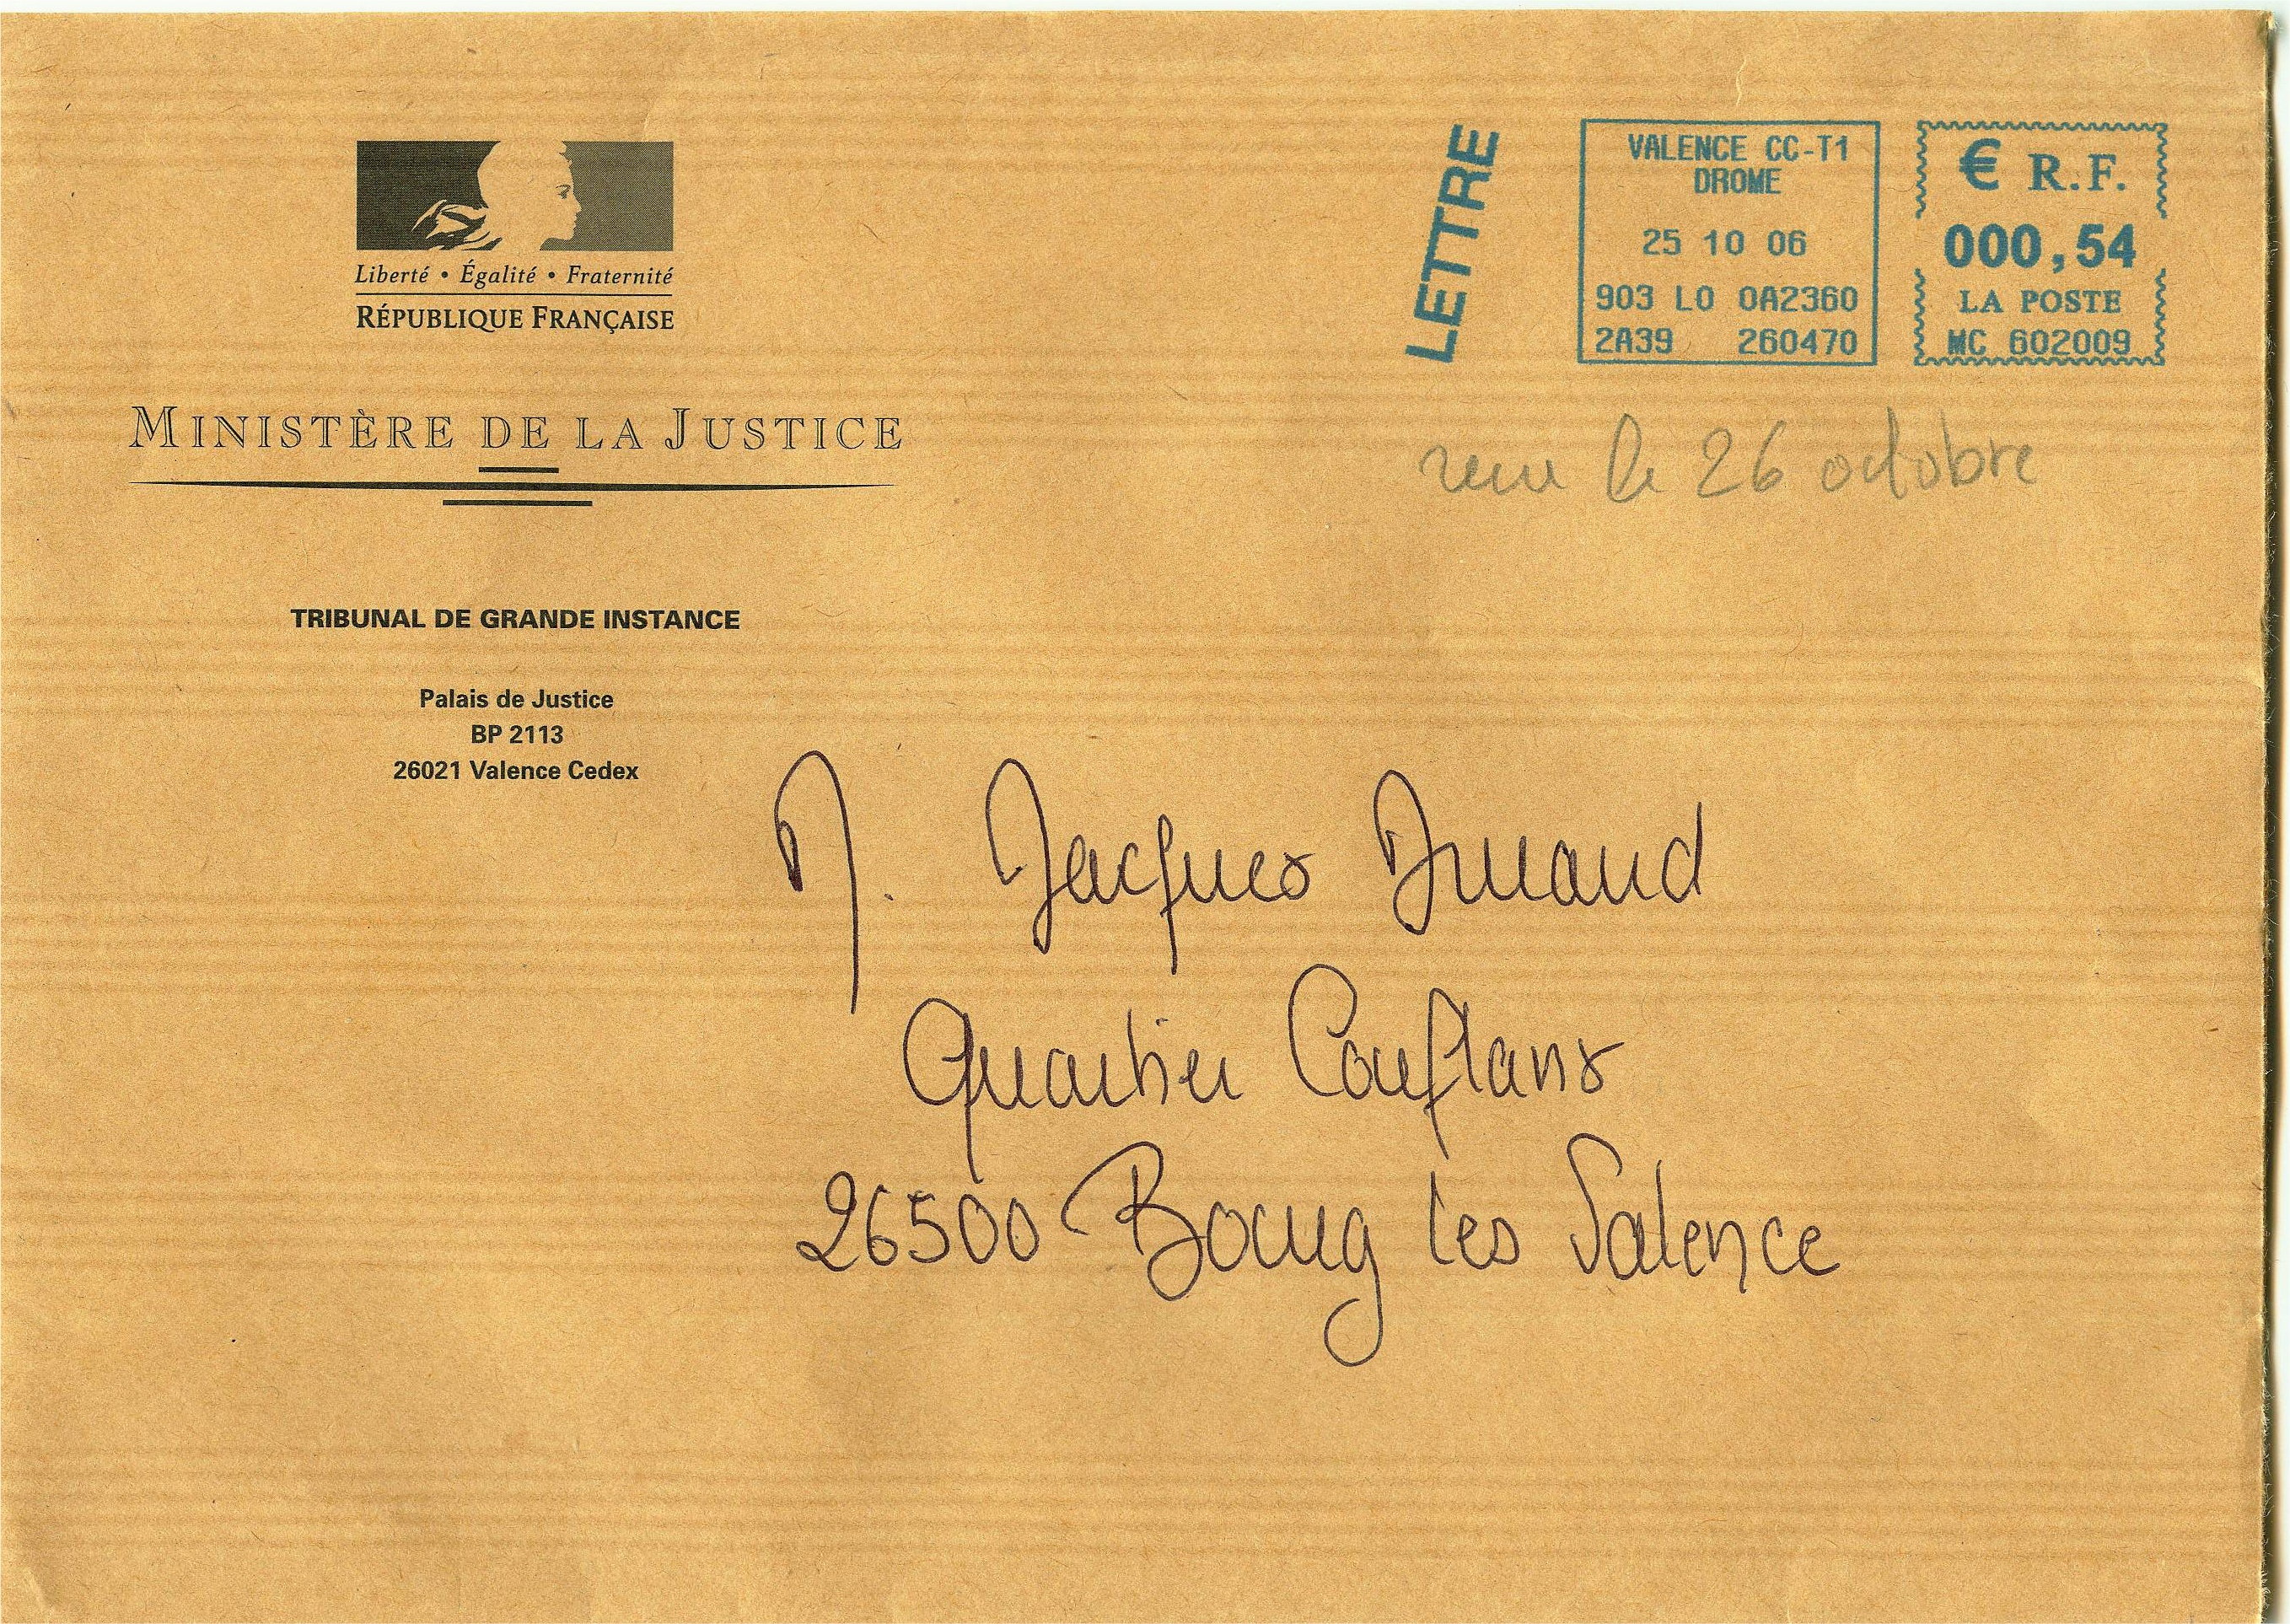 Liberté • Égalité • Fraternité
RÉPUBLIQUE FRANÇAISE
MINISTÈRE DE LA JUSTICE
TRIBUNAL DE GRANDE INSTANCE
Palais de Justice
BP 2113
26021 Valence Cedex
LETTRE
VALENCE CC-T1
DROME
25 10 06
903 LO 0A2360
2A39 260470
€ R.F.
000,54
LA POSTE
MC 602009
le 26 octobre
M. Jacques
Quartier Conflans
26500 Bourg les Valence